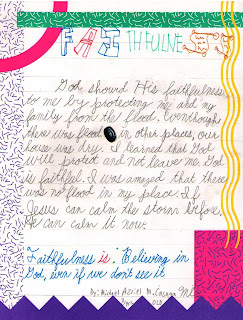 FAITHFULNESS
God showed His faithfulness
to me by protecting me and my
family from the flood. Eventhough
there was flood in other places, our
house was dry. I learned that God
will protect and not leave me. God
is faithful. I was amazed that there
was no flood in my place. If
Jesus can calm the storm before,
He can calm it now.
Faithfulness is: Believing in
God, even if we don't see it
By: Michael M.